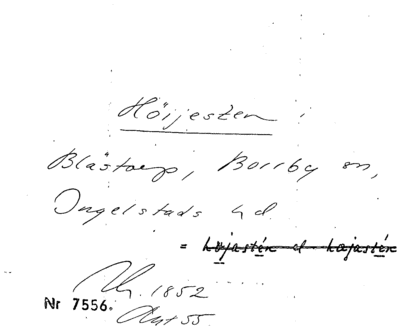 Höijesten
Blåstorp, Borrby sn,
Ingelstads hd
= höjastén el hæjastén
1852
Nr 7556.
Ant 55